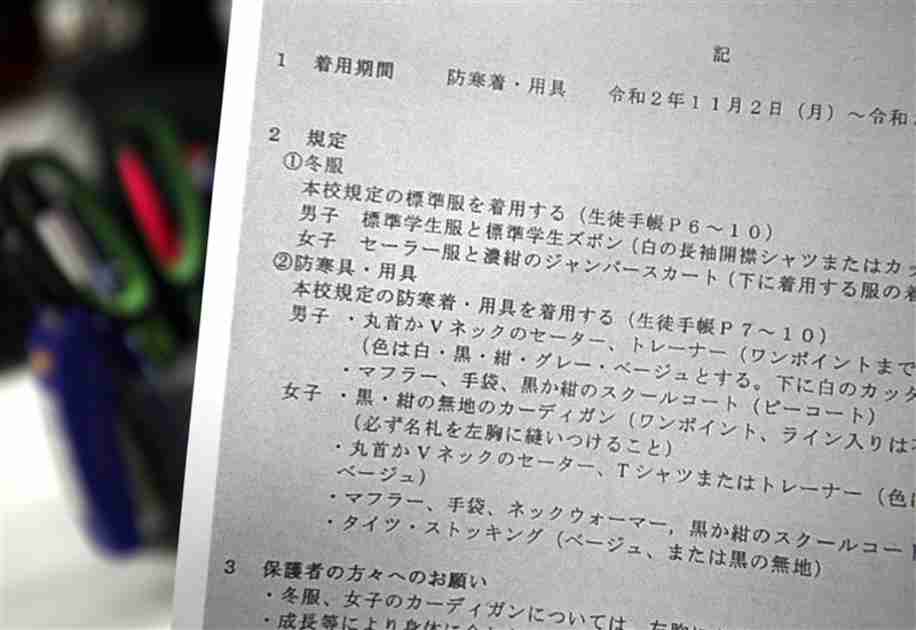 記
1 着用期間 防寒着・用具 令和2年11月2日（月）～令和
2 規定
①冬服
本校規定の標準服を着用する（生徒手帳P6～10）
男子 標準学生服と標準学生ズボン（白の長袖開襟シャツまたはカッ
女子 セーラー服と濃紺のジャンパースカート（下に着用する服の着
②防寒具・用具
本校規定の防寒着・用具を着用する（生徒手帳P7～10）
男子 ・丸首かVネックのセーター、トレーナー（ワンポイントまで
（色は白・黒・紺・グレー・ベージュとする。下に白のカッタ
・マフラー、手袋、黒か紺のスクールコート（ピーコート）
女子 ・黒・紺の無地のカーディガン（ワンポイント、ライン入りは
（必ず名札を左胸に縫いつけること）
・丸首かVネックのセーター、Tシャツまたはトレーナー（色は
ベージュ）
・マフラー、手袋、ネックウォーマー，黒か紺のスクールコー
・タイツ・ストッキング（ベージュ、または黒の無地）
3 保護者の方々へのお願い
・冬服、女子のカーディガンについては、左胸
・成長等により身体に合